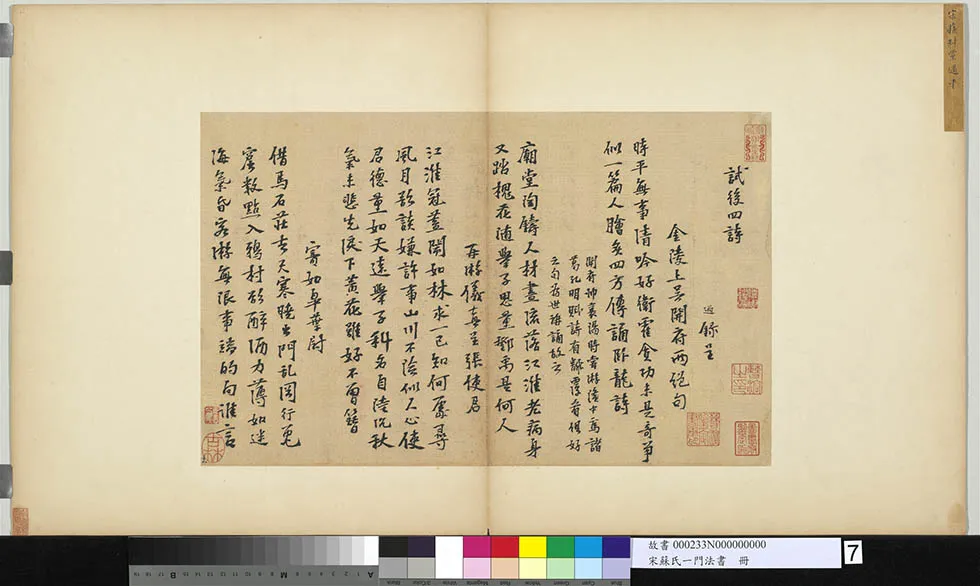 試後四詩
過錄呈
金陵上吳開府兩絕句
時平無事清吟好衛霍食功未是奇爭
似一篇人膾炙四方傳誦臥龍詩
開府帥襄陽時嘗游隆中為諸
葛孔明賦詩有看俱好
之句為世誦故云
廟堂陶鑄人材盡流落江淮老病身
又踏槐花隨舉子思量鄧禹是何人
再游儀真呈張使君
江淮冠蓋鬧如林求一已知何處尋
風月欲談嫌許事山川不險似人心使
君德量如天遠舉子科名自陸沉秋
氣未悲先淚下黃花雖好不曾簪
寄如皋葉尉
借馬石莊去天寒曉出門亂岡行兔
窟數點入鴉村欲醉酒力薄如迷
海氣昏客游無限事端的向誰言
故書 000233N000000000
宋蘇氏一門法書 冊
7